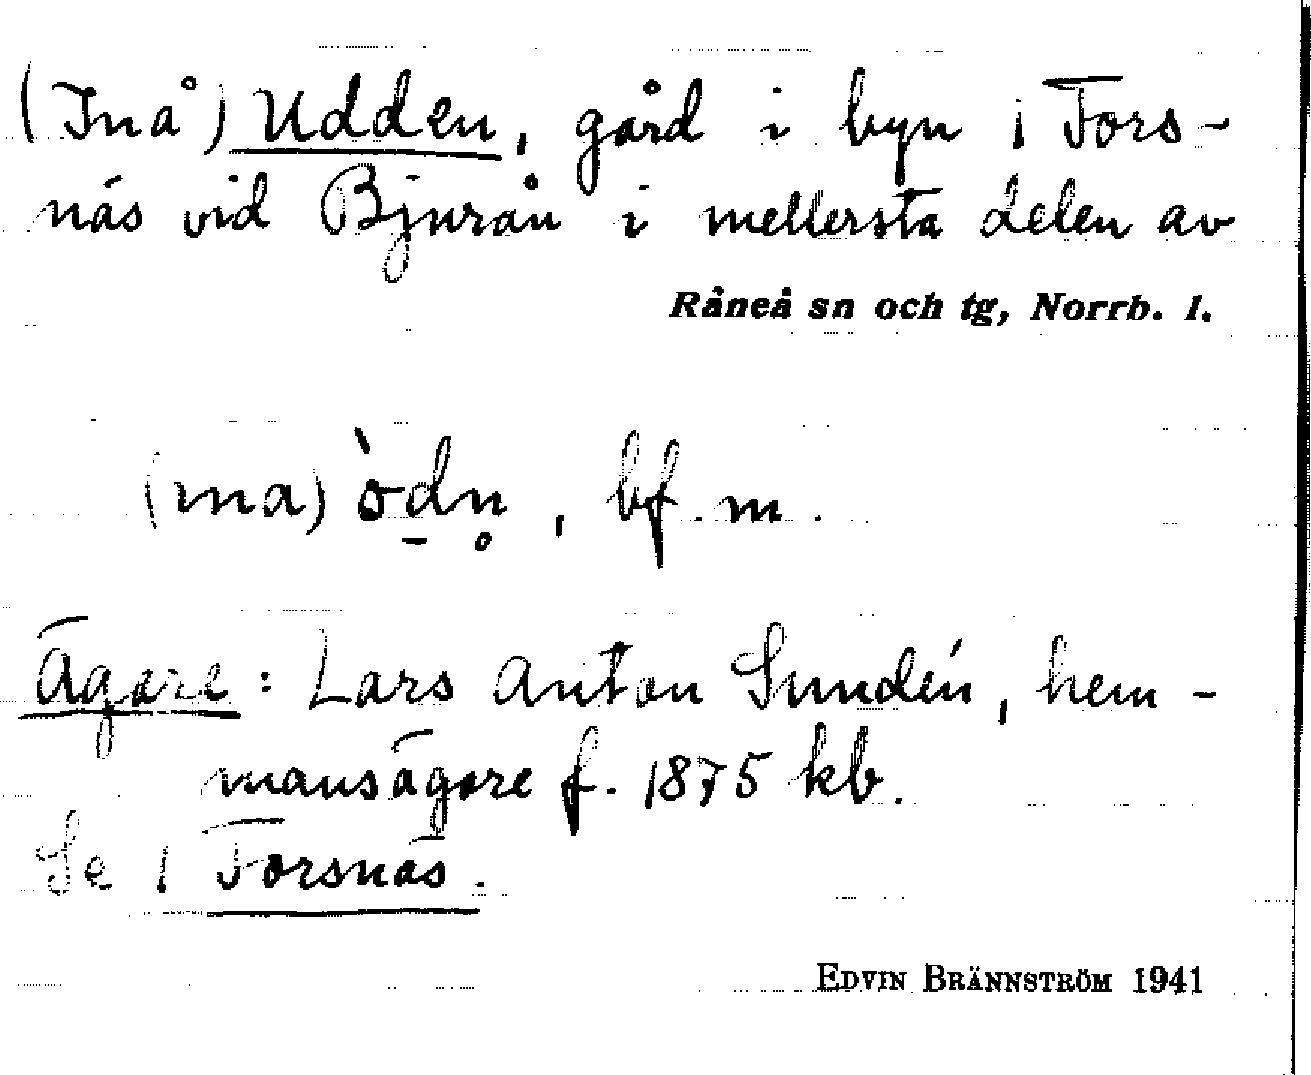 (Inå) Udden, gård i byn 1 Fors-
näs vid Bjurån i mellersta delen av
Råneå sn och tg, Norrb. l.
(ına) òdn̥, bf. m.
Ägare: Lars Anton Sundén, hem-
mansägare f. 1875 kb.
Se 1 Forsnäs.
EDVIN BRÄNNSTRÖM 1941